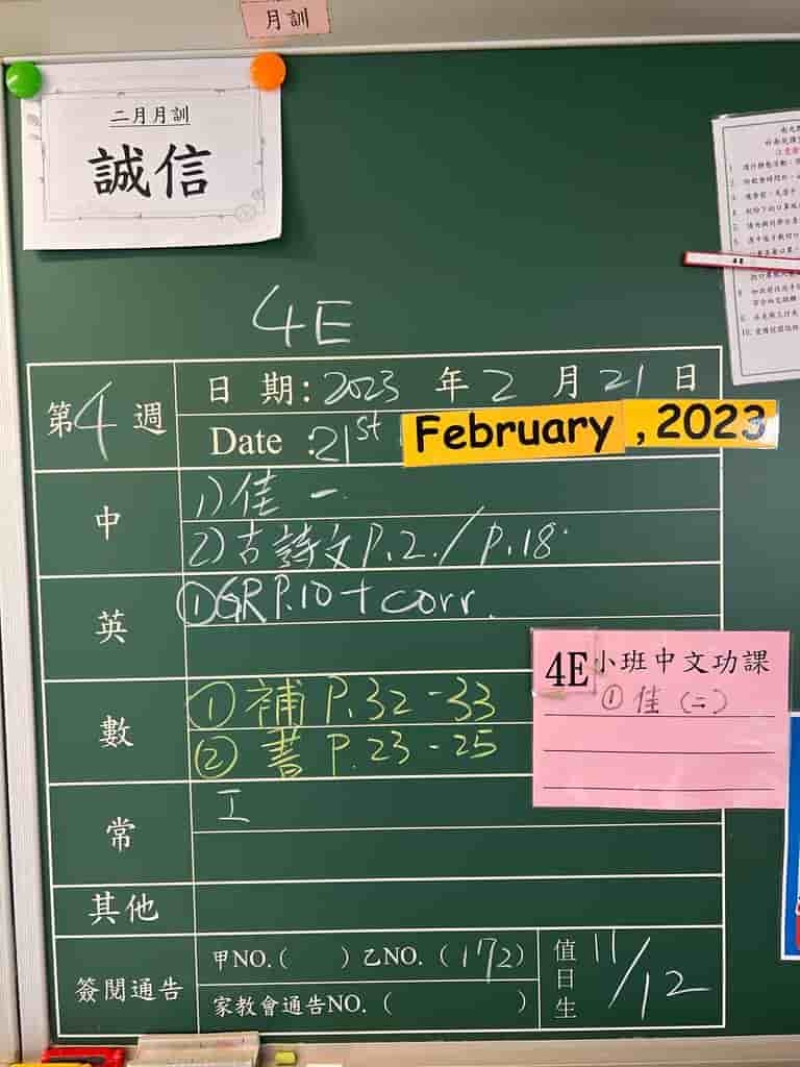 月訓
二月月訓
誠信
4E
第4週
日 期: 2023 年 2 月 21 日
Date :21st February ,2023
中
1) 佳 一
2) 古詩文 P.2./P.18
英
① GR P.10 + corr.
4E 小班中文功課
① 佳 (二)
數
① 補 P.32-33
② 書 P.23-25
常
工
其他
簽閱通告
甲NO.( ) 乙NO. (172)
家教會通告NO. ( )
值日生 11/12